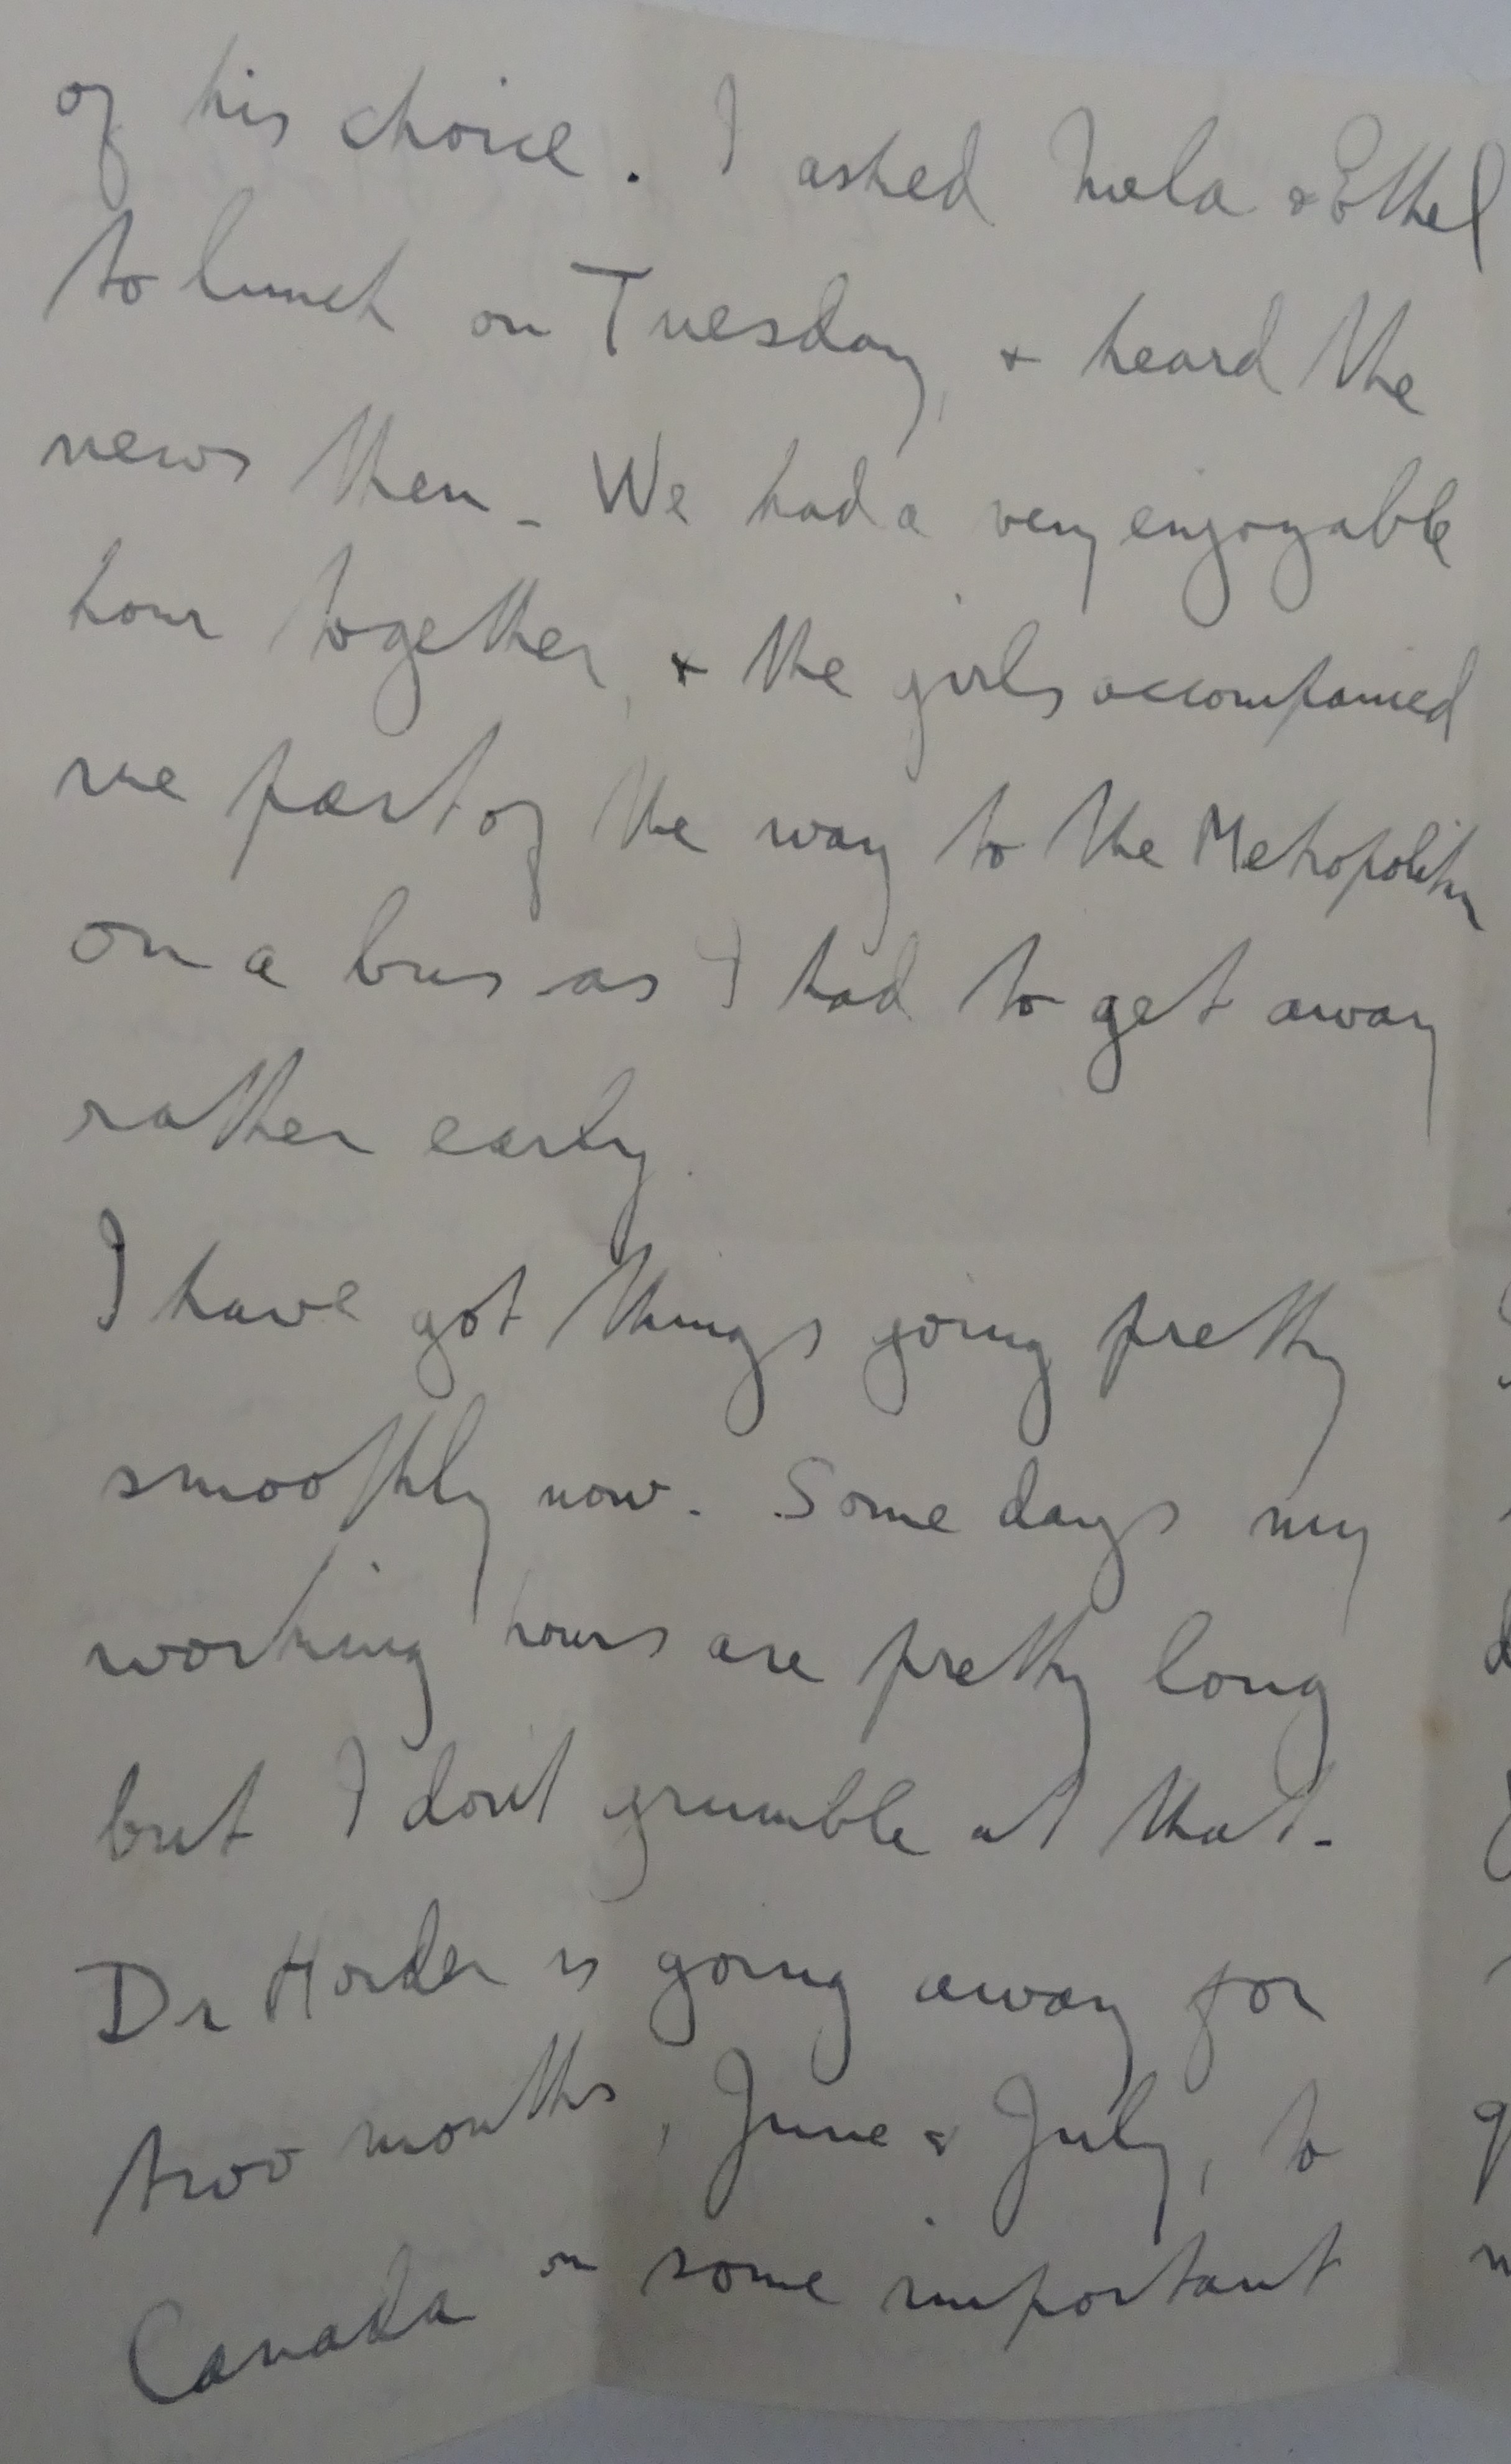 of his choice. I asked & Ethel
to lunch on Tuesday, & heard the
news then - We had a very enjoyable
hour together, & the girls accompanied
me part of the way to the Metropolitan
on a bus as I had to get away
rather early.
I have got things going pretty
smoothly now. Some days my
working hours are pretty long
but I don't grumble at that -
Dr Horder is going away for
two months, June & July, to
Canada on some important